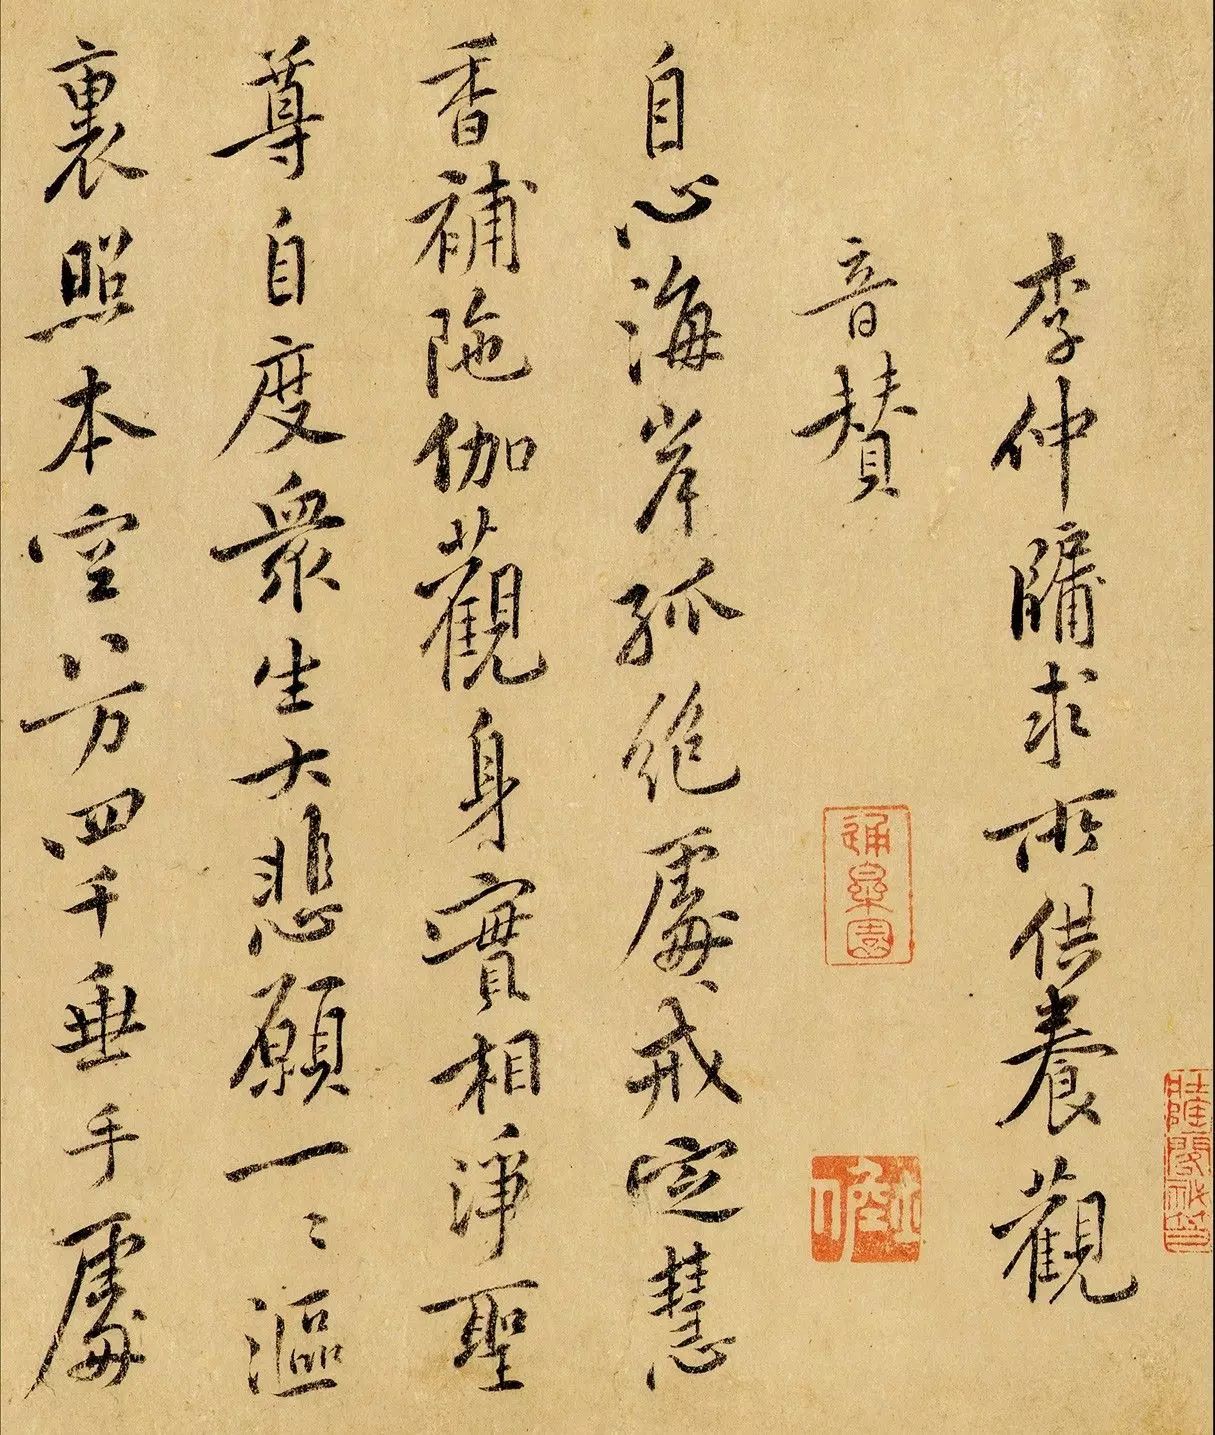 李仲牖求所供養觀
音赞
自心海岸孤绝處戒定慧
香補陁伽觀身實相淨聖
尊自度衆生大悲願一〻漚
裏照本空八万四千垂手處